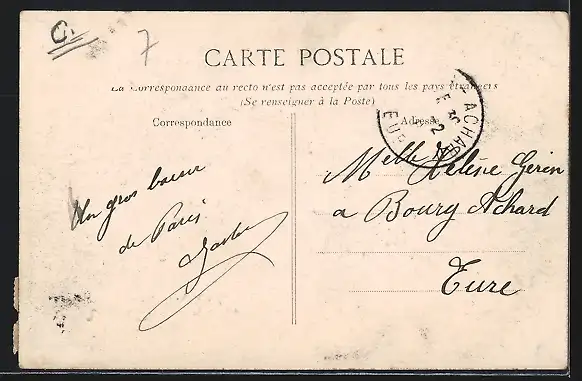 7
CARTE POSTALE
La Correspondance au recto n'est pas acceptée par tous les pays étrangers
(Se renseigner à la Poste)
Correspondance
Adresse
ACHARD
EURE
Un gros baiser
de Paris
Melle Hélène Gérin
a Bourg Achard
Eure